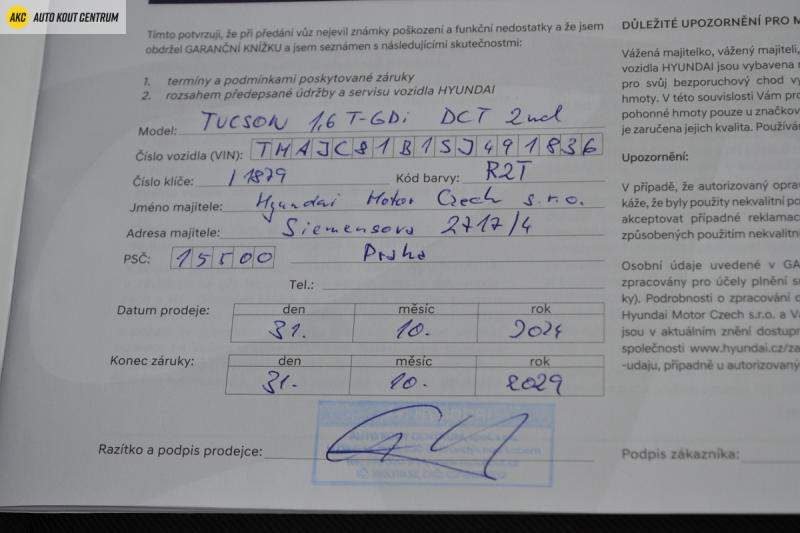 AKC AUTO KOUT CENTRUM
Tímto potvrzuji, že při předání vůz nejevil známky poškození a funkční nedostatky a že jsem
obdržel GARANČNÍ KNÍŽKU a jsem seznámen s následujícími skutečnostmi:
1. termíny a podmínkami poskytované záruky
2. rozsahem předepsané údržby a servisu vozidla HYUNDAI
Model: TUCSON 1,6 T-GDi DCT 2wd
Číslo vozidla (VIN): TMAJC81B1SJ491836
Číslo klíče: / 1879 Kód barvy: R2T
Jméno majitele: Hyundai Motor Czech s.r.o.
Adresa majitele: Siemensova 2717/4
PSČ: 15500 Praha
Tel.:
Datum prodeje: den měsíc rok
31. 10. 2024
Konec záruky: den měsíc rok
31. 10. 2029
Razítko a podpis prodejce:
DŮLEŽITÉ UPOZORNĚNÍ PRO
Vážená majitelko, vážený majiteli,
vozidla HYUNDAI jsou vybavena
pro svůj bezporuchový chod
hmoty. V této souvislosti Vám
pohonné hmoty pouze u
je zaručena jejich kvalita.
Upozornění:
V případě, že autorizovaný
káže, že byly použity nekvalitní
akceptovat případné
způsobených použitím
Osobní údaje uvedené v
zpracovány pro účely plnění
ky). Podrobnosti o zpracování
Hyundai Motor Czech s.r.o. a
jsou v aktuálním znění
společnosti www.hyundai.cz/
-udaju, případně u
Podpis zákazníka: